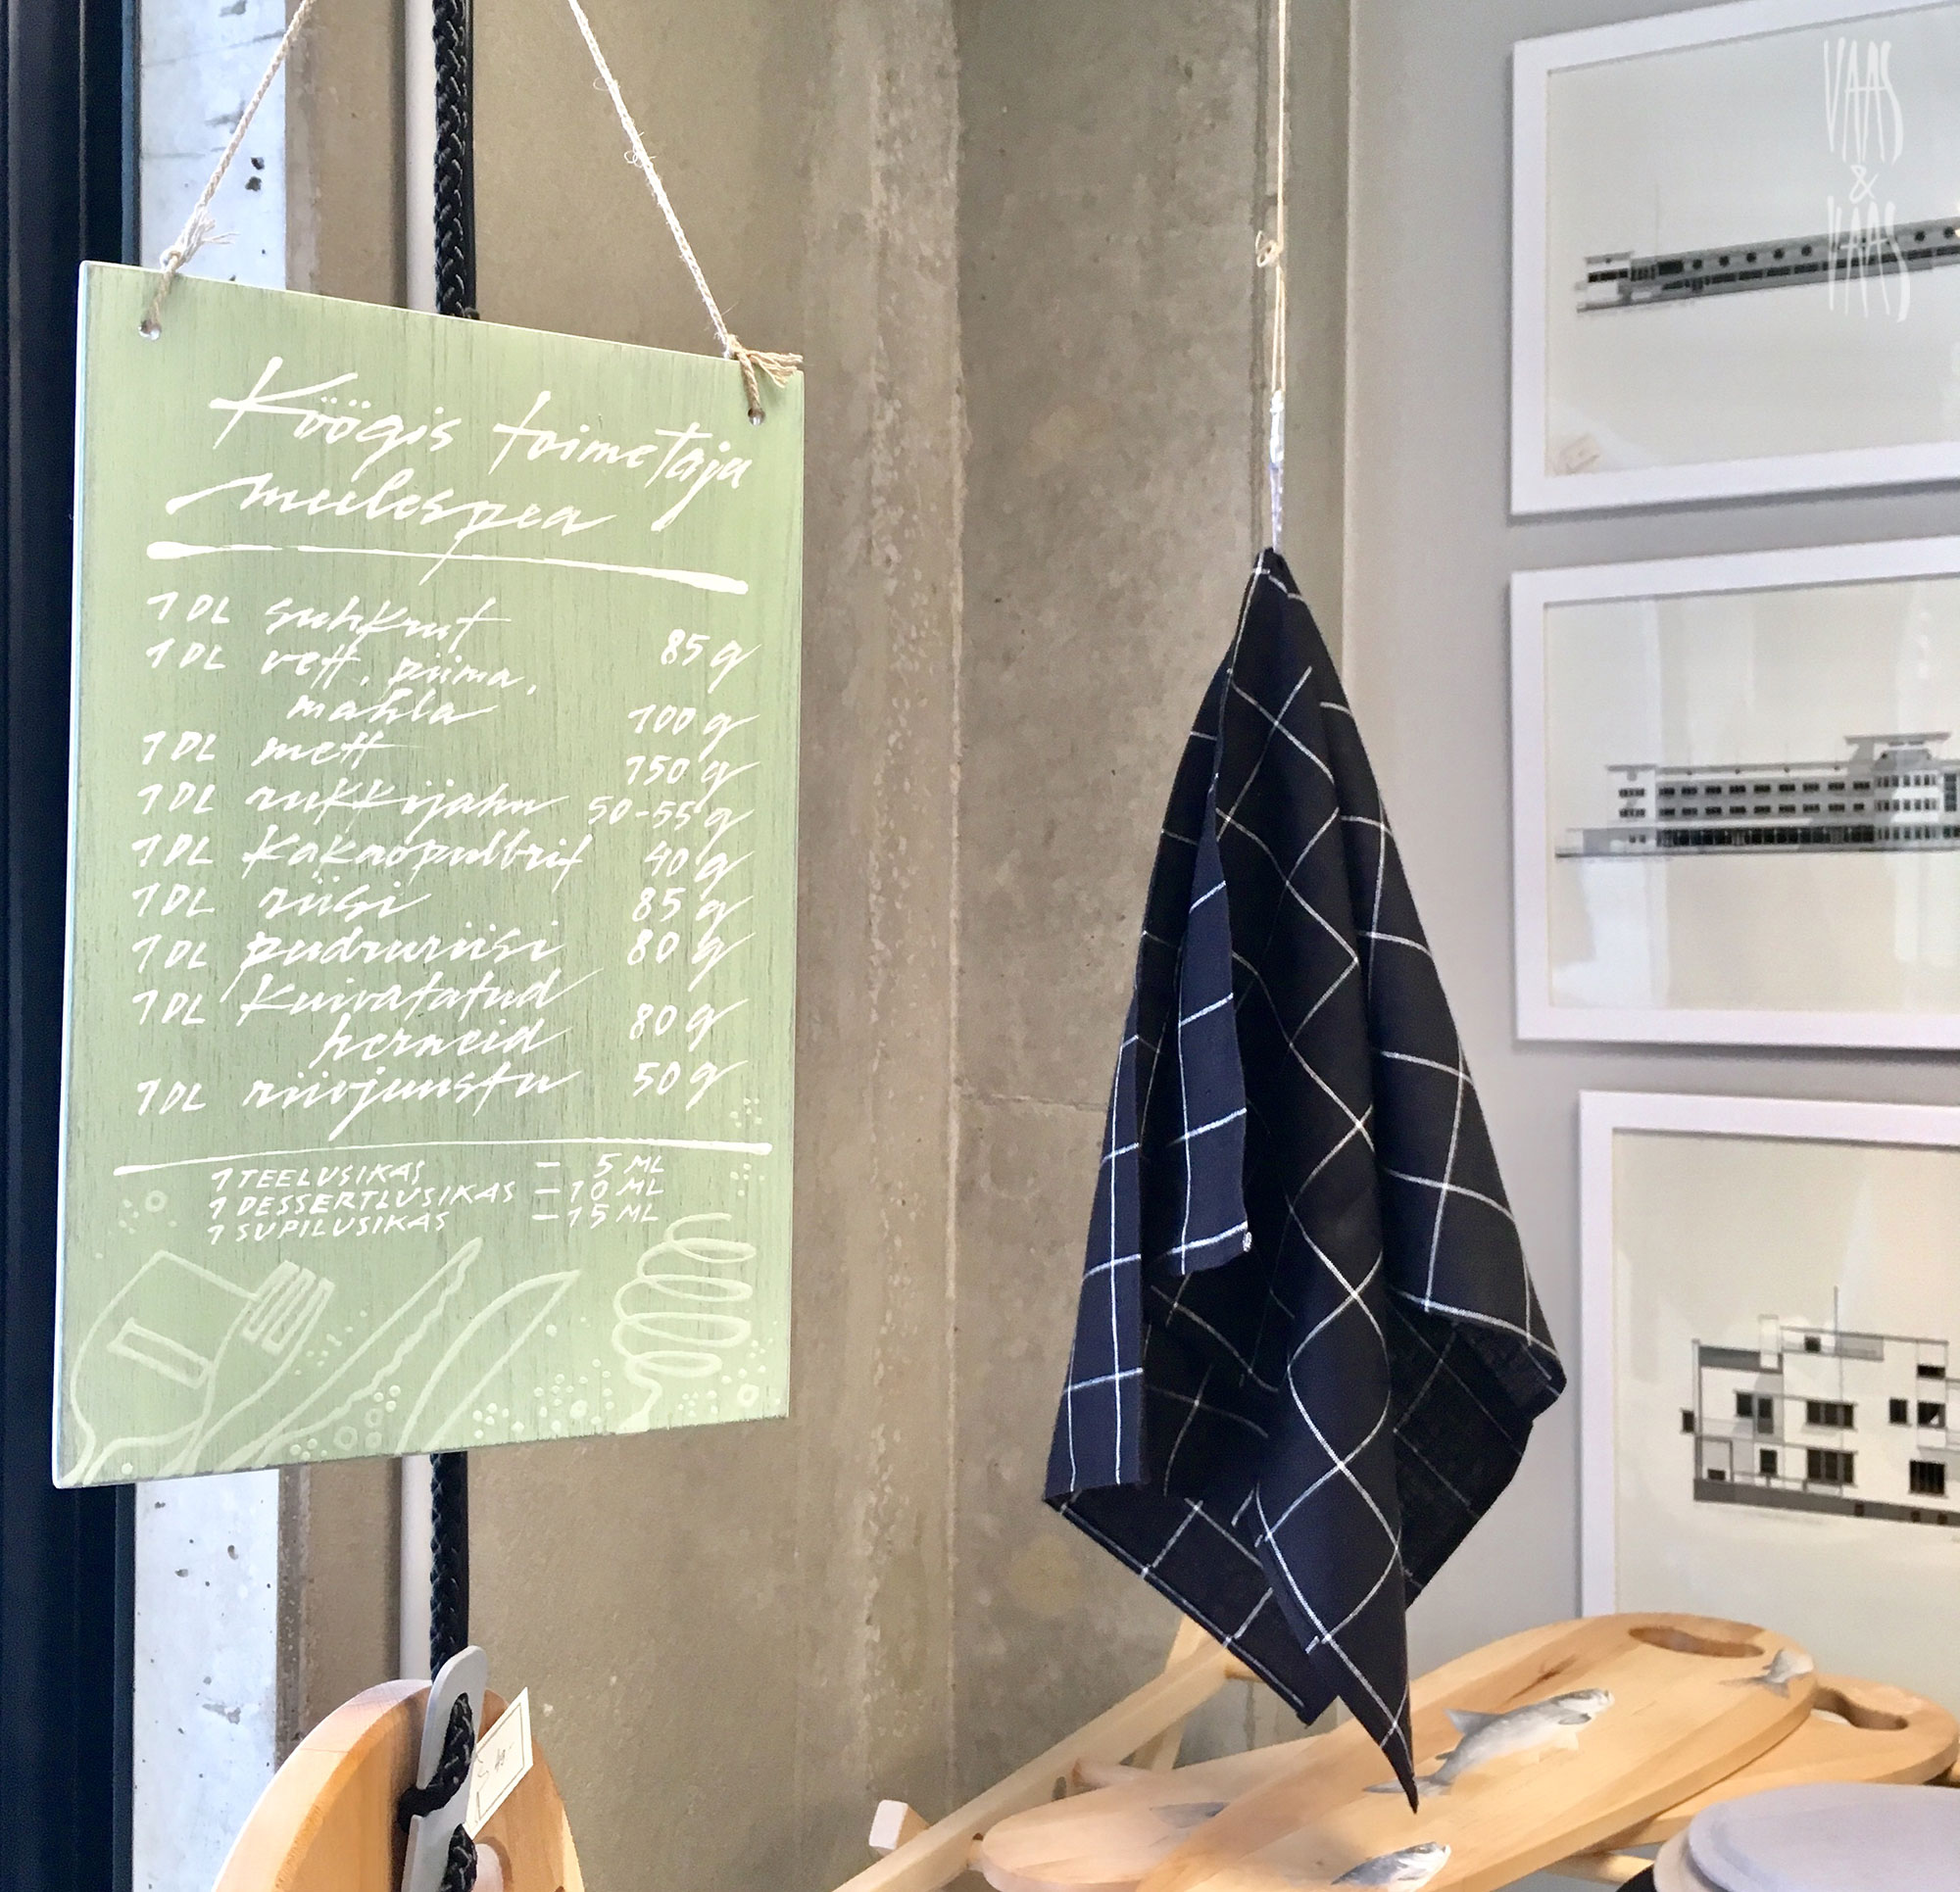 Köögis toimetaja
meelespea
1 DL suhkrut 85 g
1 DL vett, piima,
mahla 100 g
1 DL mett 150 g
1 DL rukkijahu 50-55 g
1 DL kakaopulbrit 40 g
1 DL riisi 85 g
1 DL pudruriisi 80 g
1 DL kuivatatud
herneid 80 g
1 DL riivjuustu 50 g
1 TEELUSIKAS – 5 ML
1 DESSERTLUSIKAS – 10 ML
1 SUPILUSIKAS – 15 ML
VAAS
&
VAAS